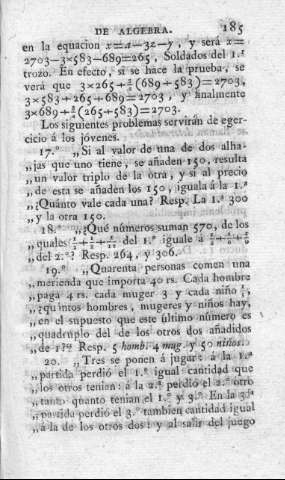 DE ALGEBRA. 185
en la equacion x=a−3z−y, y será x=
2703−3×583−689=265, Soldados del 1.º
trozo. En efecto, si se hace la prueba, se
verá que 3×265+(689+583)=2703,
3×583+265+689=2703, y finalmente
3×689+(265+583)=2703.
Los siguientes problemas servirán de eger-
cicio á los jóvenes.
17.º „Si al valor de una de dos alha-
„jas que uno tiene, se añaden 150, resulta
„un valor triplo de la otra, y si al precio
„de esta se añaden los 150, iguala á la 1.ª
„¿Quánto vale cada una? Resp. La 1.ª 300
„y la otra 150.
18.º „¿Qué números suman 570, de los
„quales del 1.º iguale á
„del 2.º? Resp. 264, y 306.
19.º „Quarenta personas comen una
„merienda que importa 40 rs. Cada hombre
„paga 4 rs. cada muger 3 y cada niño
„¿quántos hombres, mugeres y niños hay,
„en el supuesto que este último número es
„quadruplo del de los otros dos añadidos
„de 1?? Resp. 5 homb. 4 mug. y 50 niños.
20. „Tres se ponen á jugar: á la 1.ª
„partida perdió el 1.º igual cantidad que
„los otros tenian: á la 2.ª perdió el 2.º otro
„tanto quanto tenian el 1.º y 3.º En la 3.ª
„partida perdió el 3.º tambien cantidad igual
„á la de los otros dos: y al salir del juego